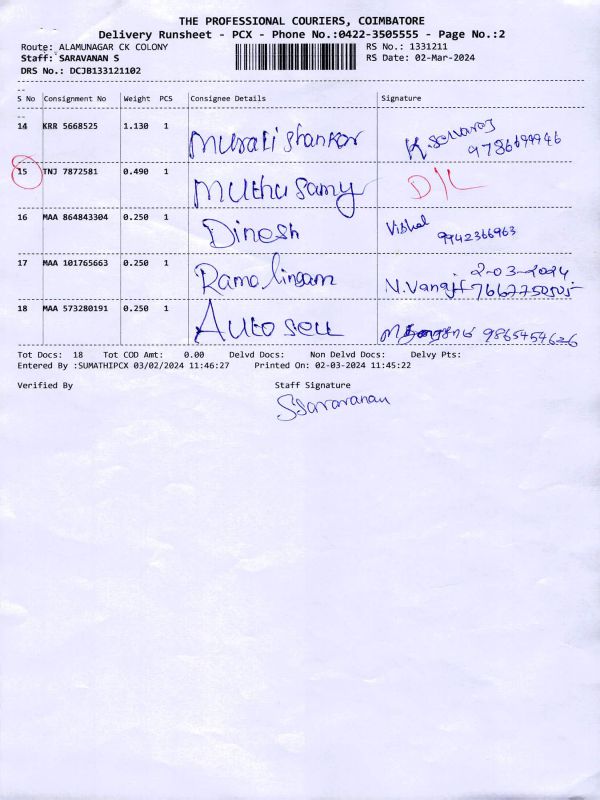 THE PROFESSIONAL COURIERS, COIMBATORE
Delivery Runsheet - PCX - Phone No.:0422-3505555 - Page No.:2
Route: ALAMUNAGAR CK COLONY RS No.: 1331211
Staff: SARAVANAN S RS Date: 02-Mar-2024
DRS No.: DCJB133121102
S No Consignment No Weight PCS Consignee Details Signature
14 KRR 5668525 1.130 1 Murali shankar
15 TNJ 7872581 0.490 1 Muthu samy D/L
16 MAA 864843304 0.250 1 Dinesh Vishal 9942366963
17 MAA 101765663 0.250 1 Rama lingam 2-03-2024
18 MAA 573280191 0.250 1 Auto seu
Tot Docs: 18 Tot COD Amt: 0.00 Delvd Docs: Non Delvd Docs: Delvy Pts:
Entered By :SUMATHIPCX 03/02/2024 11:46:27 Printed On: 02-03-2024 11:45:22
Verified By Staff Signature
S Saravanan